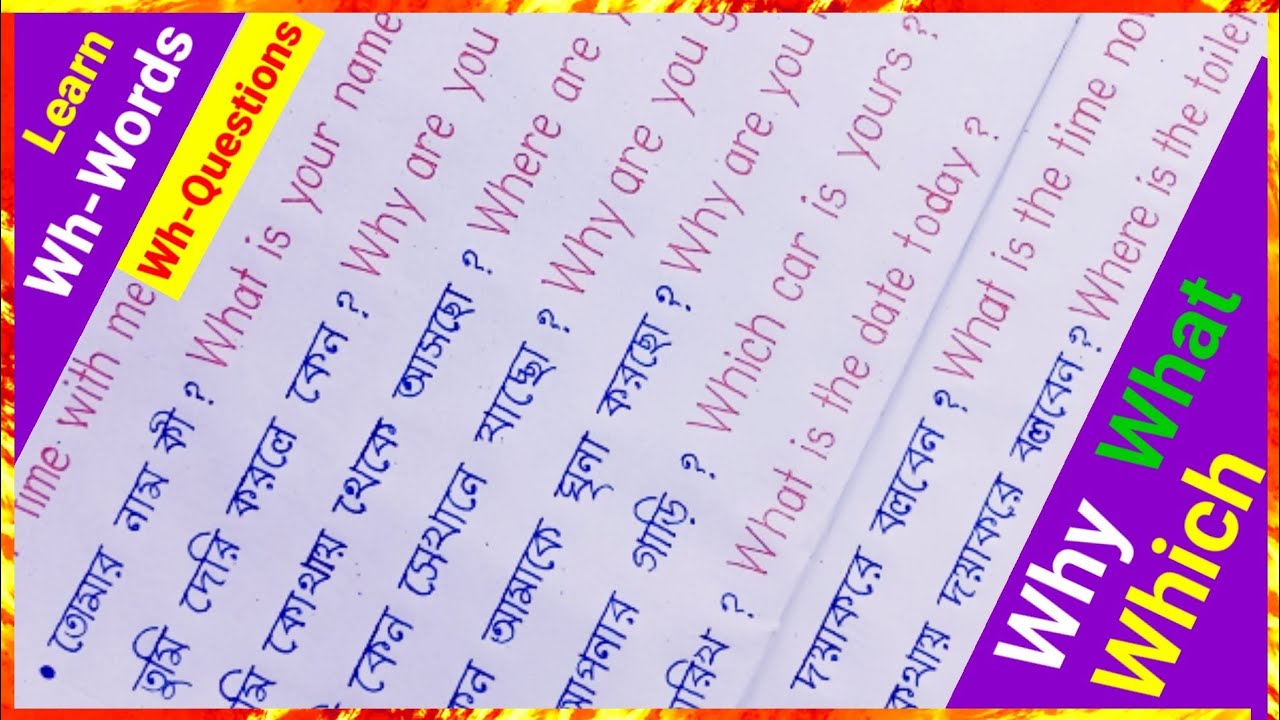 Learn
Wh-Words
Wh-Questions
time with me
• তোমার নাম কী ? What is your name
তুমি দেরি করলে কেন ? Why are you
মি কোথায় থেকে আসছো ? Where are
কেন সেখানে যাচ্ছো ? Why are you g
কেন আমাকে ঘৃনা করছো ? Why are you
আপনার গাড়ি ? Which car is yours ?
ারিখ ? What is the date today ?
দয়াকরে বলবেন ? What is the time no
কথায় দয়াকরে বলবেন ? Where is the toilet
Why What
Which